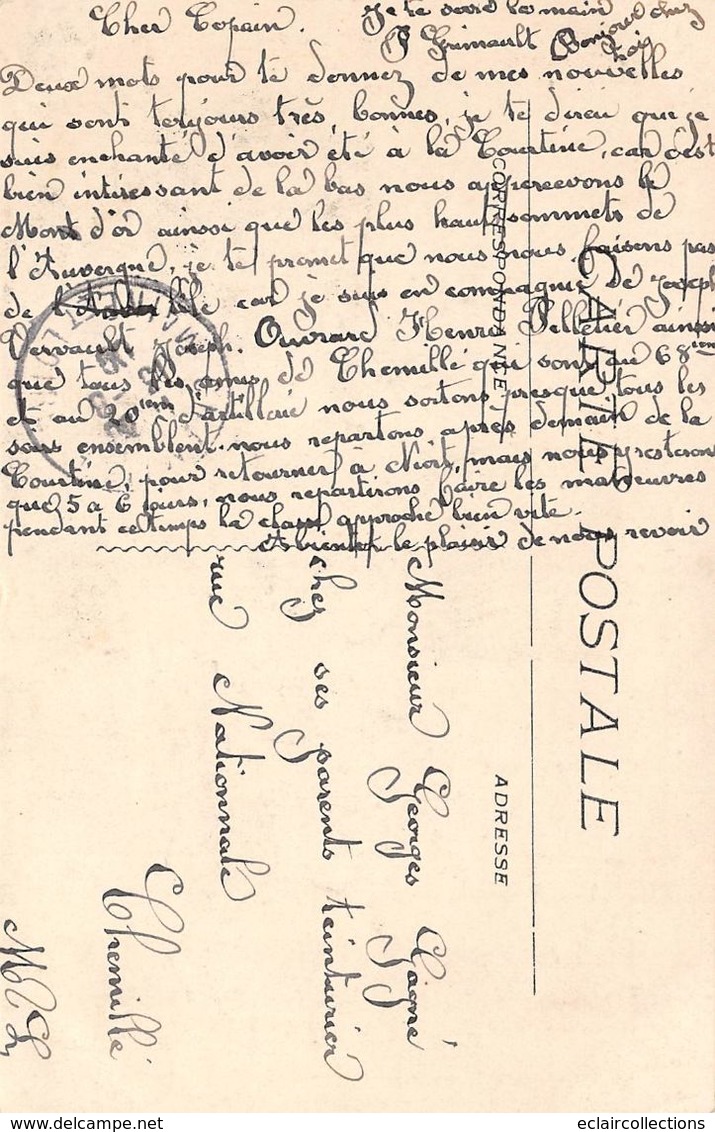 Cher Copain.
Je te serre la main
P Grimault
Bonjour chez
toi
Deux mots pour te donnez de mes nouvelles
qui sont toujours très bonnes, je te direu que je
suis enchanté d'avoir été à la Courtine, car c'est
bien intéressant de la bas nous appercevons le
Mont d'or ainsi que les plus haut sommets de
l'Auvergne, je te promet que nous nous faisons pas
de bile car je suis en compagnie de Joseph
Vervault Joseph. Ouvrard Henri Pelletier ainsi
que tous les amis de Chemillé qui sont au 68ieme
et au 20ieme d'artillerie nous sortons presque tous les
soirs ensemblent. nous repartons après demain de la
Courtine, pour retourner à Niort, mais nous y resteron
que 5 à 6 jours, nous repartirons faire les manœuvres
pendant ce temps la classe approche bien vite.
A bientot le plaisir de nous revoir
CARTE POSTALE
CORRESPONDANCE
ADRESSE
Monsieur Georges Gagné
chez ses parents teinturier
rue Nationnale
Chemillé
M & L
eclaircollections